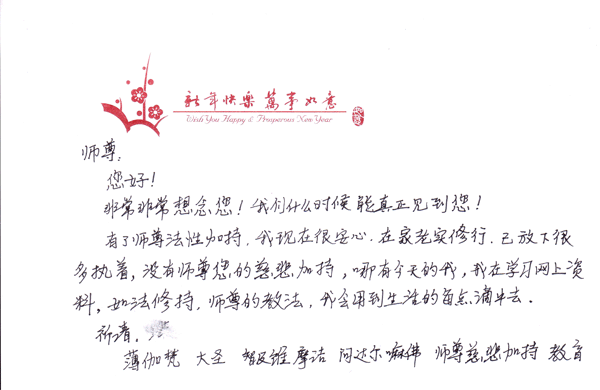 新年快樂 萬事如意
Wish You Happy & Prosperous New Year
师尊:
您好!
非常非常想念您!我们什么时候能真正见到您!
有了师尊法性加持,我现在很安心.在家老实修行.已放下很
多执着,没有师尊您的慈悲加持,哪有今天的我,我在学习网上资
料,如法修持.师尊的教法,我会用到生活的每点滴中去.
祈请,
薄伽梵 大圣 智及维摩诘 阿达尔嘛佛 师尊慈悲加持 教育